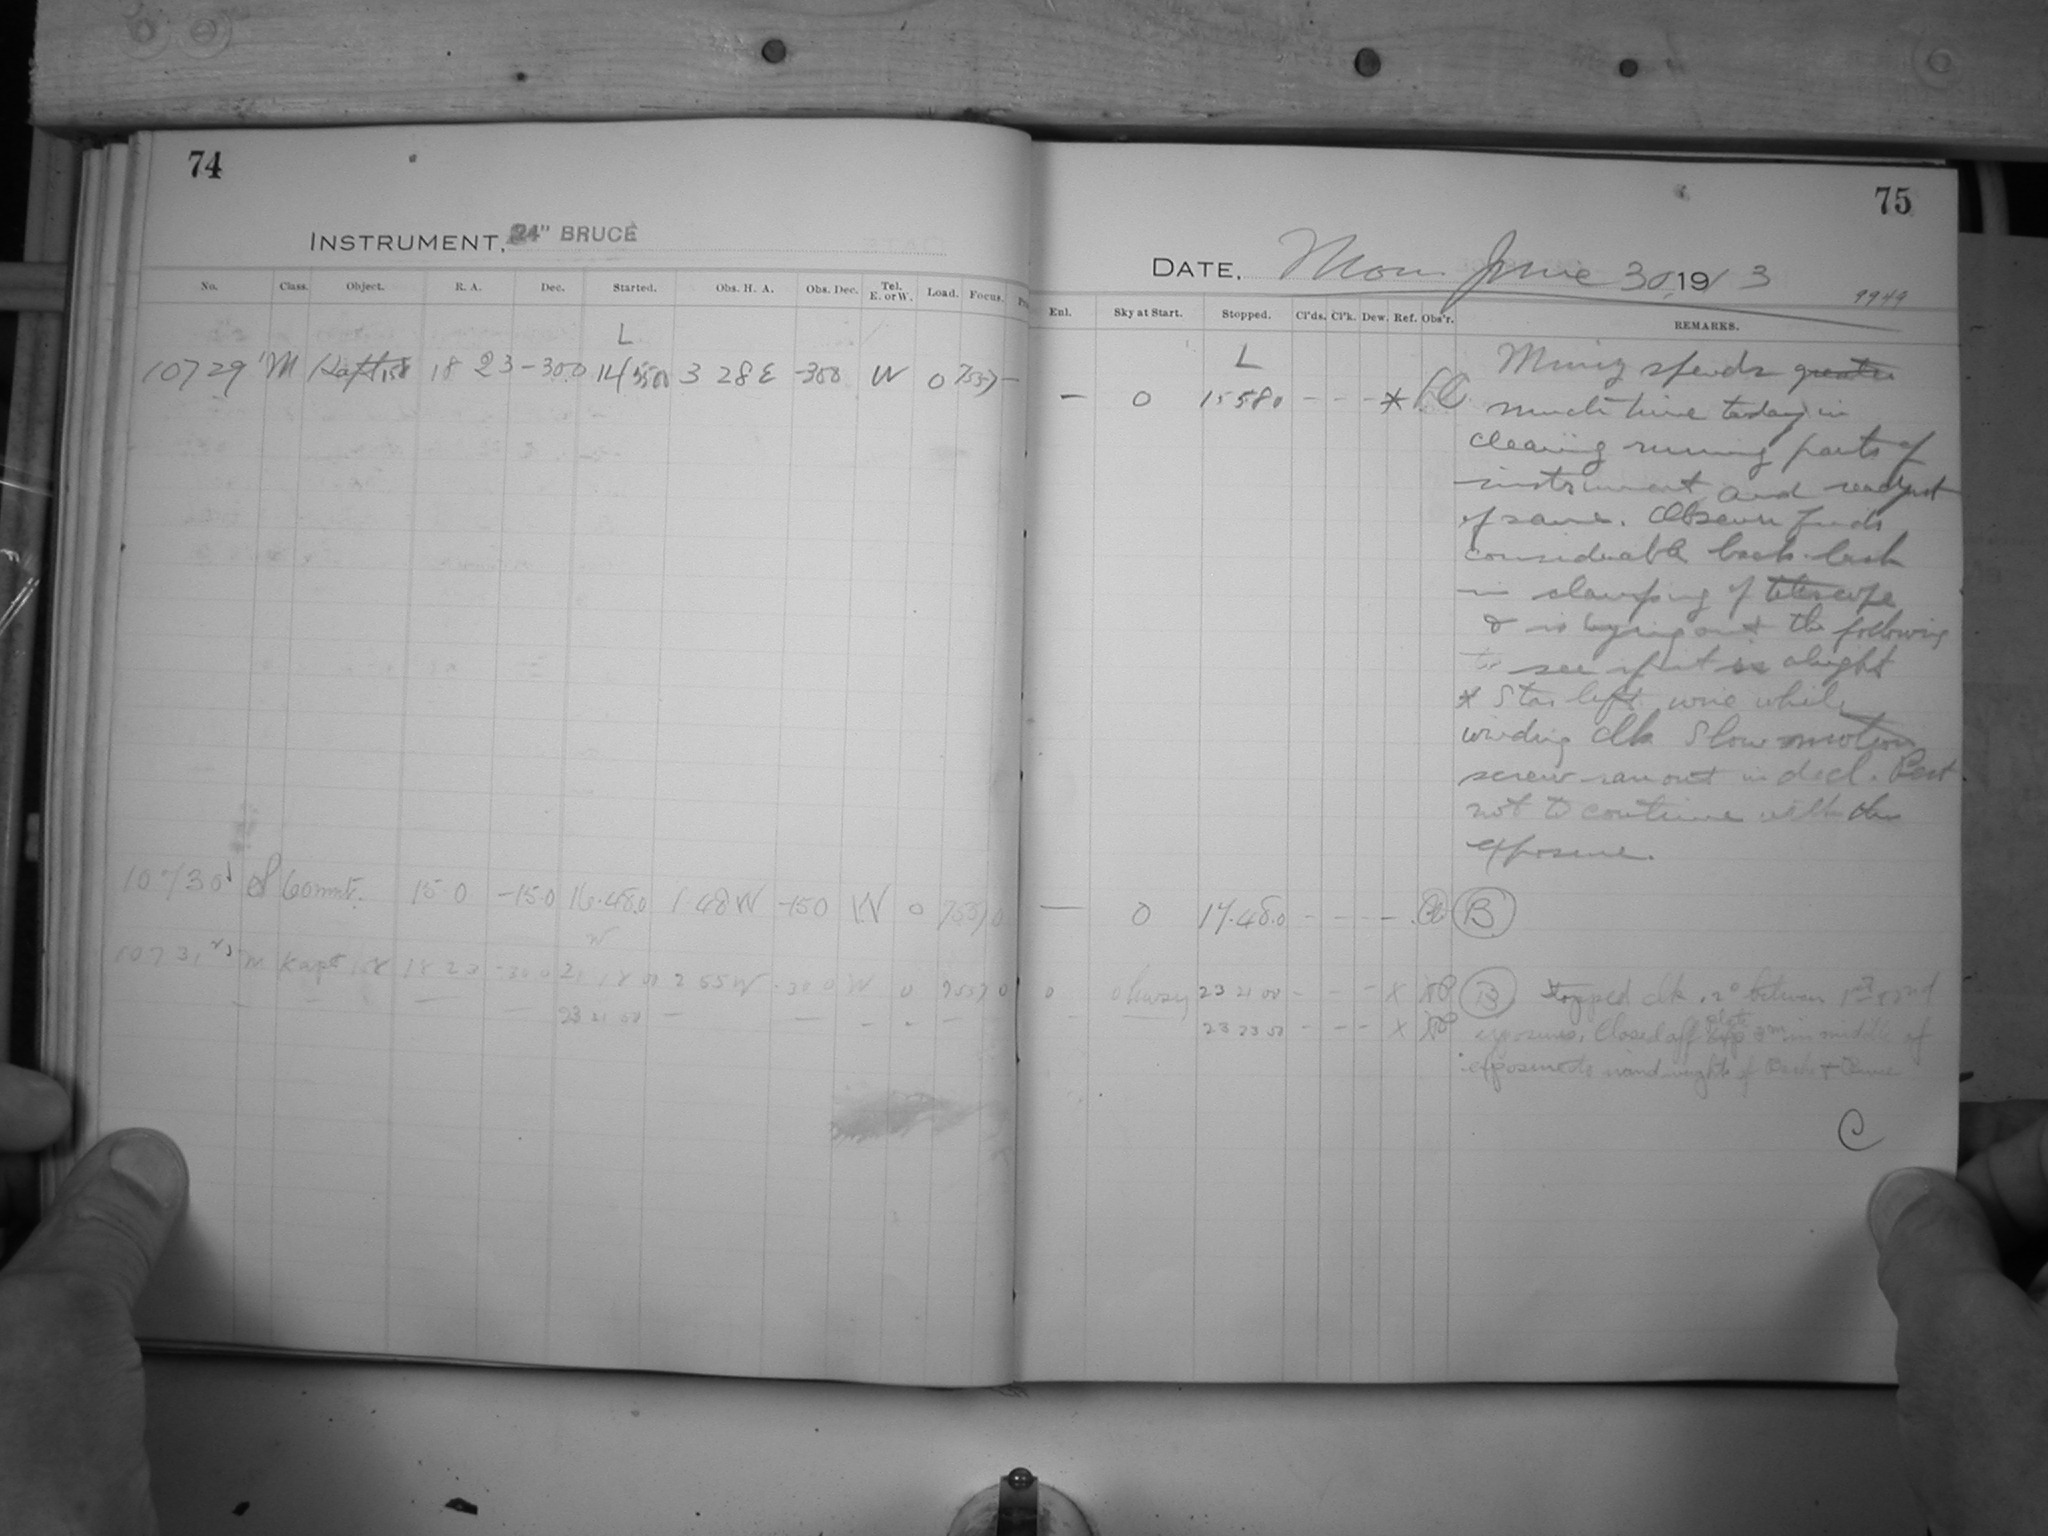 74
INSTRUMENT, 24" BRUCE
No. Class. Object. R. A. Dec. Started. Obs. H. A. Obs. Dec. Tel. E. or W. Load. Focus.
L
10729 M Kapt 158 18 23 -300 14 55 0 3 28 E -300 W 0 7557 -
10730 S 60 mnt. 15 0 -15 0 16.48.0 1 48 W -150 W 0 7557 0
10731 M Kapt 158 18 23 -30 0 21 18 00 2 55 W -30 0 W 0 7557 0
23 21 50
75
DATE, Mon June 30, 1913
9949
Enl. Sky at Start. Stopped. Cl'ds. Cl'k. Dew. Ref. Obs'r. REMARKS.
L
— 0 15 58 0 - - - *
Muniz spends greater
much time today in
cleaning running parts of
instrument and readjust
of same. Observer finds
considerable back-lash
in clamping of telescope
& is trying out the following
to see if it is alright
* Star left wire while
winding clk Slow motion
screw ran out in decl. Best
not to continue with this
exposure.
— 0 17.48.0 - - - B
0 0 hazy 23 21 00 - - - x B Stopped clk. 20 between 1st & 2nd
23 23 50 - - - x exposures. Closed off plate 3m in middle of
exposure to wind weights of
C